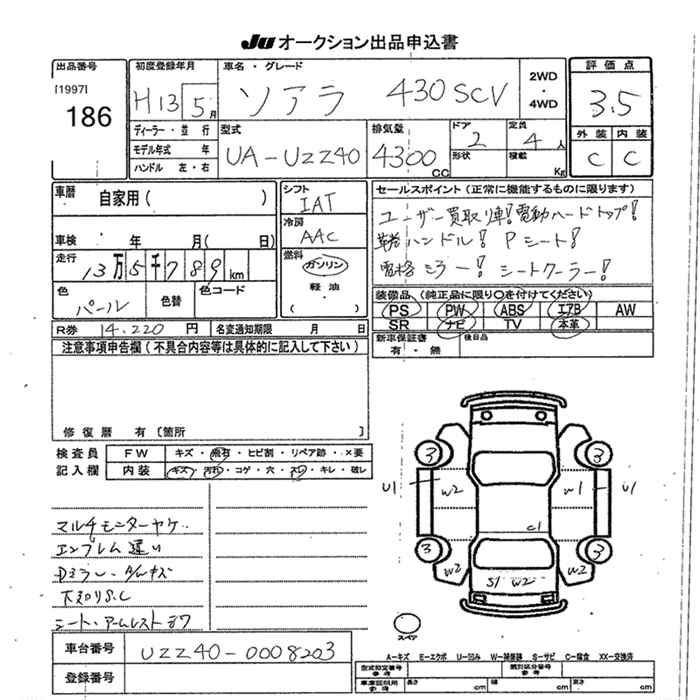 JU オークション出品申込書
出品番号 初度登録年月 車名・グレード 2WD・4WD 評価点
[1997] 186 H13 5月 ソアラ 430SCV 3.5
ディーラー・並行 型式 排気量 ドア 2 定員 4人 外装 内装
モデル年式 年 UA-UZZ40 4300CC 形状 積載 Kg C C
ハンドル 左・右
車歴 自家用( ) シフト IAT セールスポイント(正常に機能するものに限ります)
冷房 AAC ユーザー買取り車!電動ハードトップ!
車検 年 月( 日) ハンドル! Pシート!
走行 13万5千789km 燃料 ガソリン・軽油・( ) 電格ミラー! シートクーラー!
色 パール 色替 色コード 装備品(純正品に限り○を付けてください)
PS PW ABS エアB AW
R券 14.220円 名変通知期限 月 日 SR ナビ TV 本革
注意事項申告欄(不具合内容等は具体的に記入して下さい) 新車保証書 有・無 後日品
修復歴 有〔箇所 〕
検査員 FW キズ・点石・ヒビ割・リペア跡・×要
記入欄 内装 キズ・汚れ・コゲ・穴・スレ・キレ・破レ
3 3
U1 W2 W1 U1
C1
3 3
W2 S1 W2 W2
マルチモニターヤケ
エンブレム違い
Dミラー
シート・アームレスト
スペア
車台番号 UZZ40-0008203
A-キズ E-エクボ U-凹み W-補修跡 S-サビ C-腐食 XX-交換済
登録番号 型式指定番号 参考 類別区分番号 参考
車庫証明用 参考 長さ cm 幅 cm 高さ cm